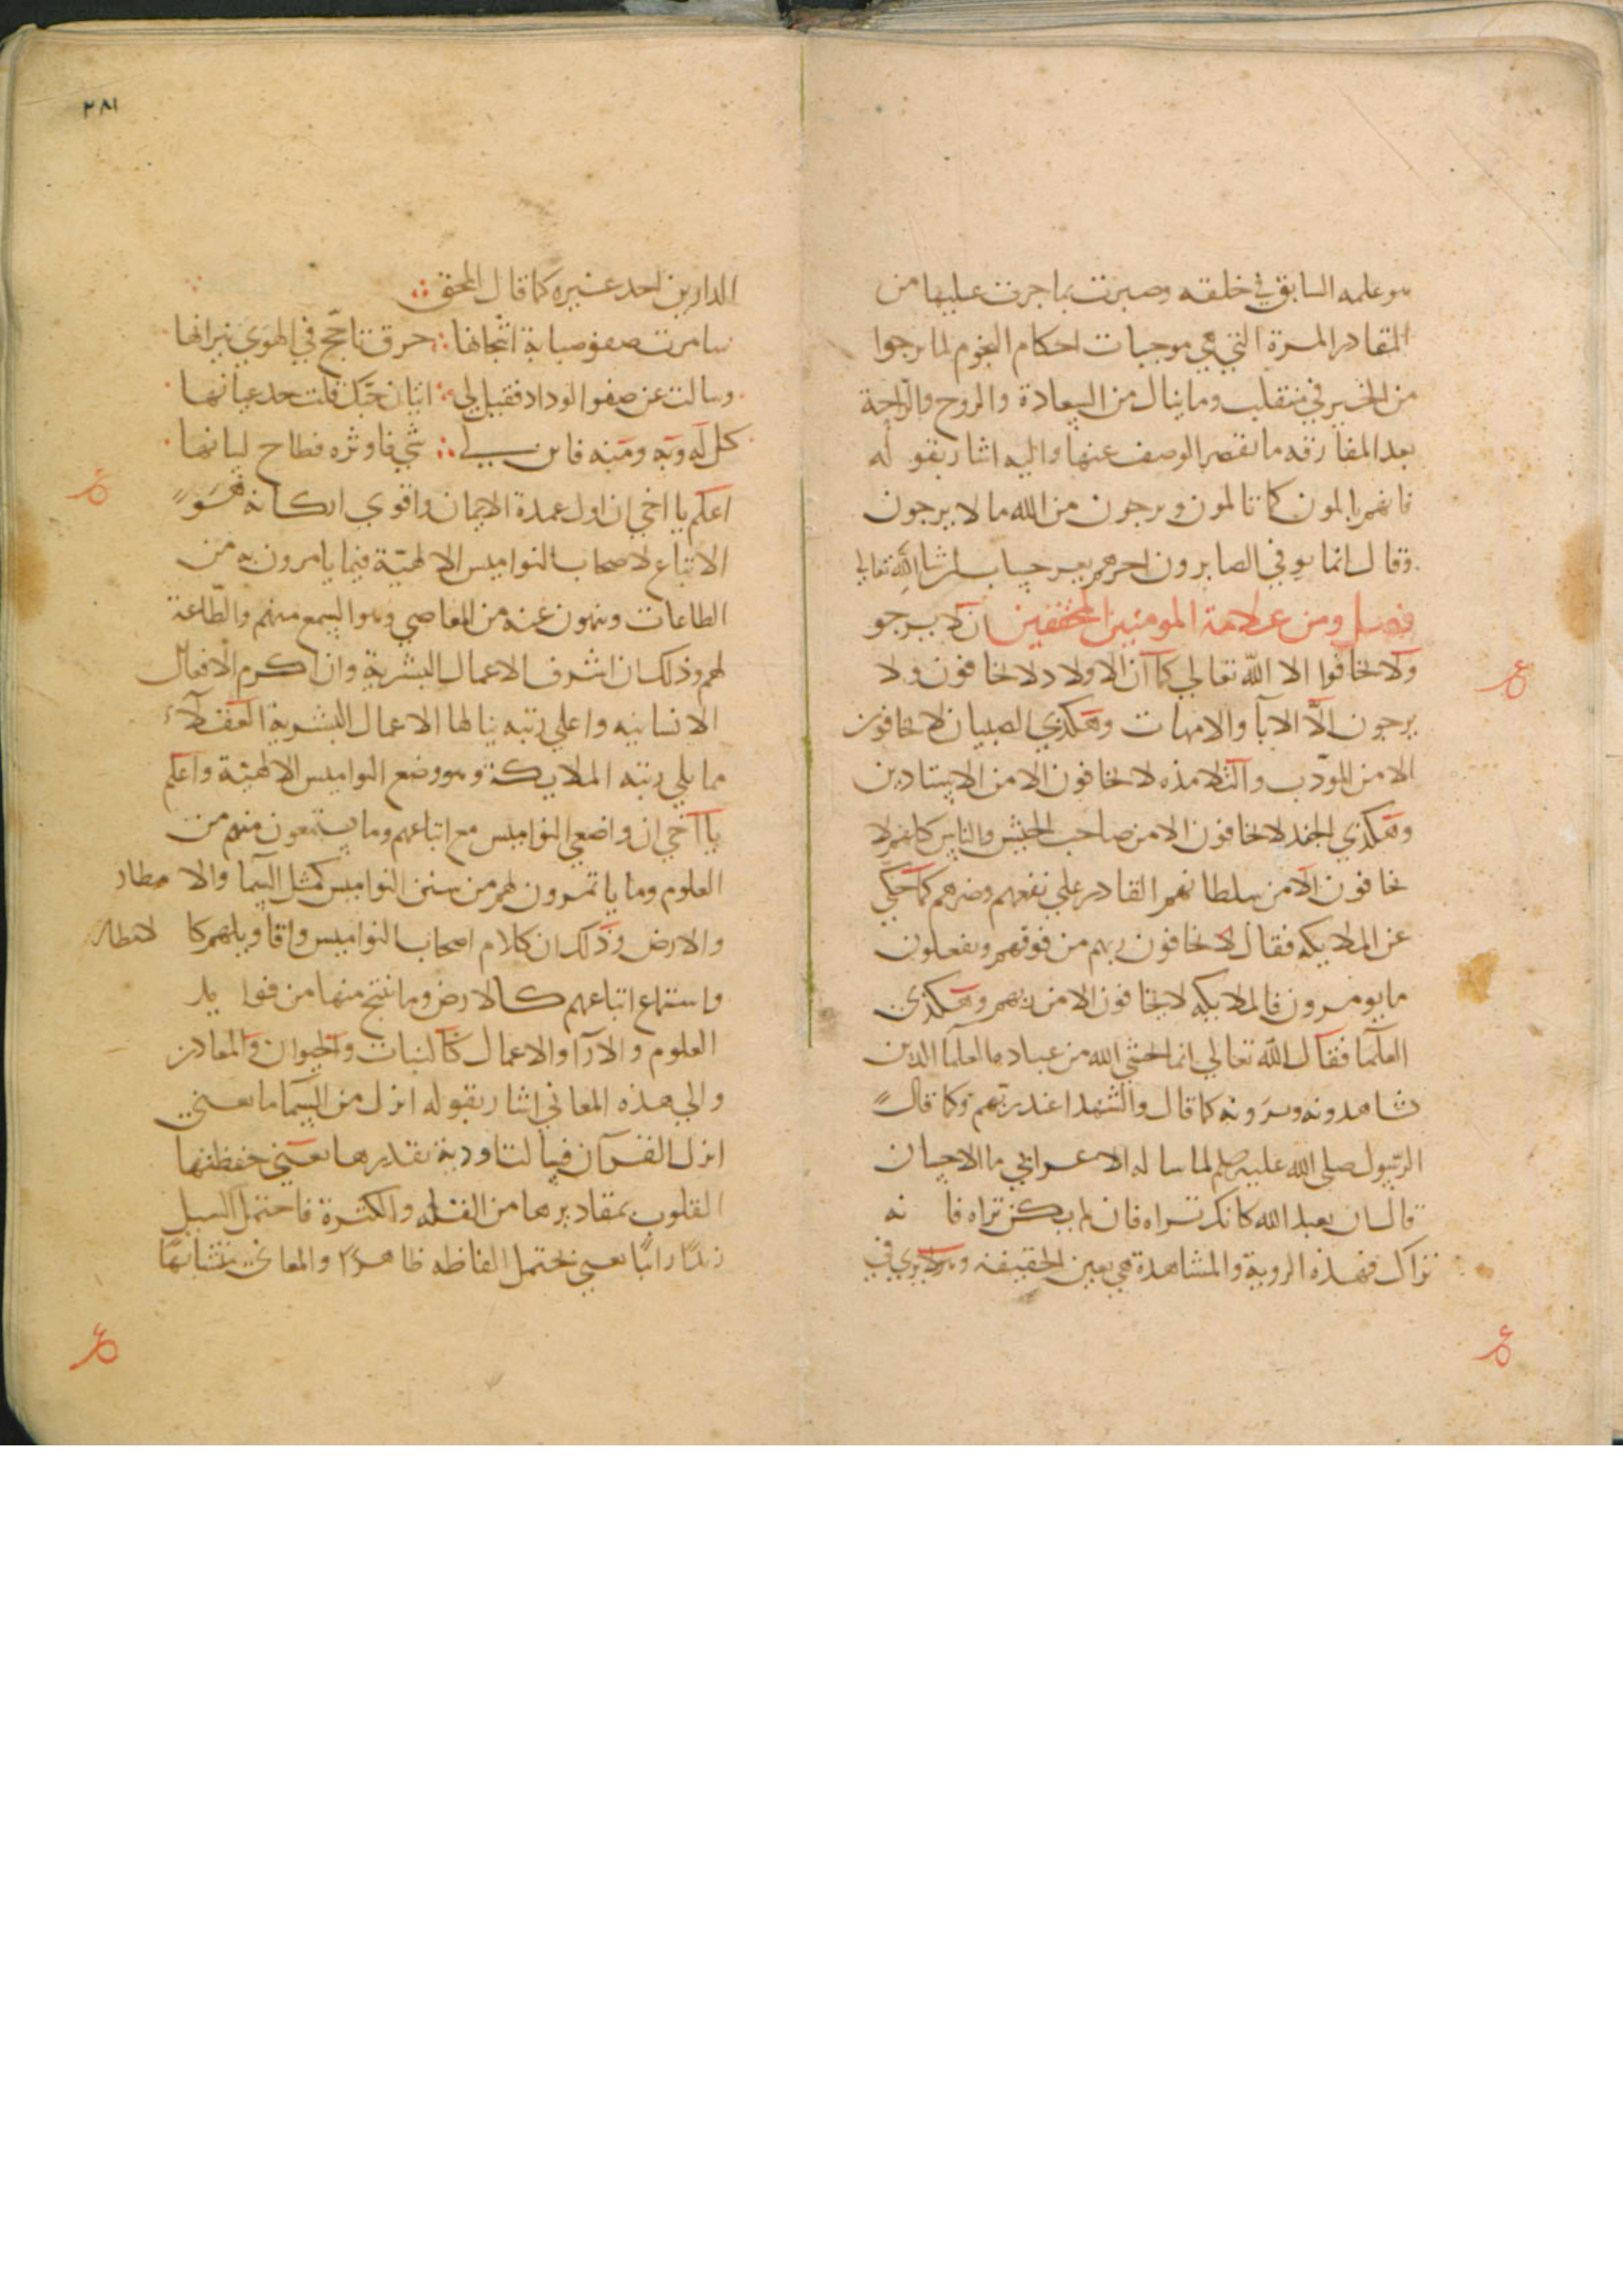 هو علمه السابق في خلقه وصبرت بما جرت عليها من
المقادر المرة التي هي موجبات احكام النجوم لما يرجوا
من الخير في منقلب وما ينال من السعادة والروح والراحة
بعد المفارقه ما يقصر الوصف عنها واليه اشار بقوله
فانهم يالمون كما تالمون وترجون من الله ما لا يرجون
وقال انما يوفي الصابرون اجرهم بغير حساب ان شا الله تعالي
فصل ومن علامة المومنين المحققين ان لا يرجو
ولا يخافوا الا الله تعالي كما ان الاولاد لا يخافون ولا
يرجون الا الابا والامهات وهكذي الصبيان لا يخافون
الا من المودب والتلامذه لا يخافون الا من الاستادين
وهكذي الجند لا يخافون الا من صاحب الجيش والناس كلهم لا
يخافون الا من سلطانهم القادر علي نفعهم وضرهم كما حكي
عن الملايكه فقال لا يخافون ربهم من فوقهم ويفعلون
ما يومرون فالملايكه لا يخافون الا من ربهم وهكذي
العلما فقال الله تعالي انما يخشي الله من عباده العلما الذين
يشاهدونه ويرونه كما قال والشهدا عند ربهم وكما قال
الرسول صلي الله عليه وسلم لما ساله الاعرابي ما الاحسان
قال ان تعبد الله كانك تراه فان لم تكن تراه فانه
يراك فهذه الروية والمشاهدة هي بعين الحقيقه ولا يري في
٢٨١
الدارين احد غيره كما قال المحق
سامرت صفو صبابة اشجانها حرق تاجج في الهوي نيرانها
وسالت عن صفو الوداد فقيل لي ايثار حبك قلت حد عيانها
كل له وبه ومنه فاين لي شي فاوثره فطاح لسانها
اعلم يا اخي ان اول عمدة الايمان واقوي اركانه هو
الاتباع لاصحاب النواميس الالهية فيما يامرون به من
الطاعات وينهون عنه من المعاصي وهو السمع منهم والطاعة
لهم وذلك ان اشرف الاعمال البشرية وان اكرم الافعال
الانسانيه واعلي رتبه ينالها الاعمال البشرية العقلا
مما يلي رتبه الملايكة وهو وضع النواميس الالهية واعلم
يا اخي ان واضعي النواميس مع اتباعهم وما يستمعون منهم من
العلوم وما ياتمرون لهم من سنن النواميس كمثل السما والامطار
والارض وذلك ان كلام اصحاب النواميس واقاويلهم كالامطار
واستماع اتباعهم كالارض وما ينتج منها من فوايد
العلوم والارا والاعمال كالنبات والحيوان والمعادن
والي هذه المعاني اشار بقوله انزل من السما ما يعني
انزل القران فسالت اودية بقدرها يعني حفظتها
القلوب بمقاديرها من القله والكثرة فاحتمل السيل
زبدا رابيا يعني يحتمل الفاظه ظاهرا والمعاني متشابها